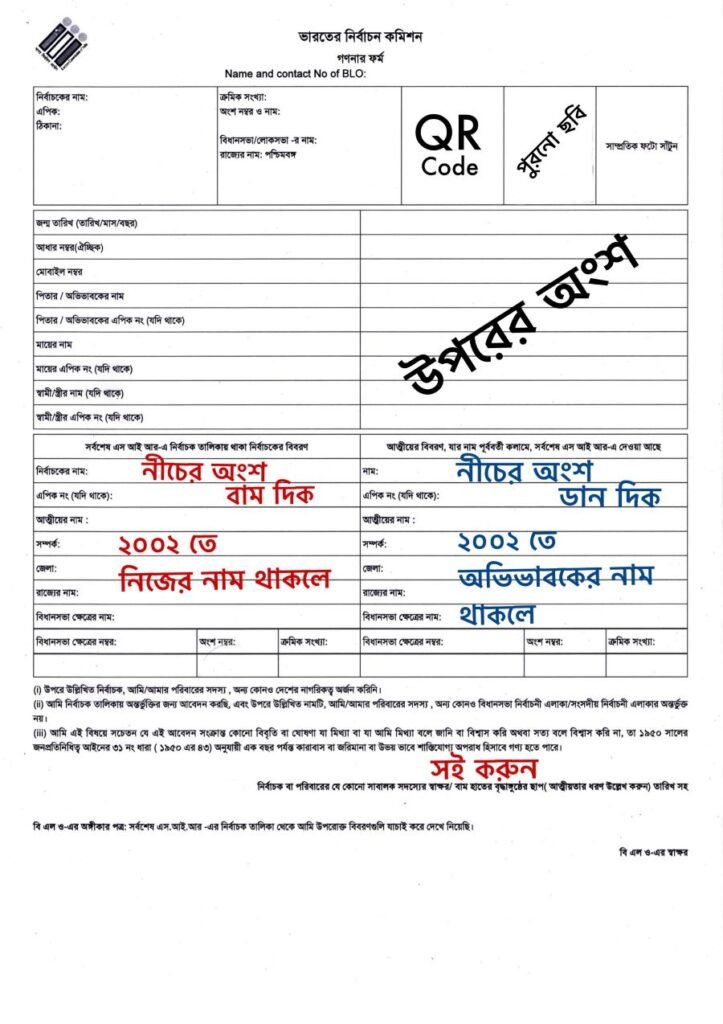 ভারতের নির্বাচন কমিশন
গণনার ফর্ম
Name and contact No of BLO:
নির্বাচকের নাম:
এপিক:
ঠিকানা:
ক্রমিক সংখ্যা:
অংশ নম্বর ও নাম:
বিধানসভা/লোকসভা -র নাম:
রাজ্যের নাম: পশ্চিমবঙ্গ
QR
Code
পুরনো ছবি
সাম্প্রতিক ফটো সাঁটুন
জন্ম তারিখ (তারিখ/মাস/বছর)
আধার নম্বর(ঐচ্ছিক)
মোবাইল নম্বর
পিতার / অভিভাবকের নাম
পিতার / অভিভাবকের এপিক নং (যদি থাকে)
মায়ের নাম
মায়ের এপিক নং (যদি থাকে)
স্বামী/স্ত্রীর নাম (যদি থাকে)
স্বামী/স্ত্রীর এপিক নং (যদি থাকে)
উপরের অংশ
সর্বশেষ এস আই আর-এ নির্বাচক তালিকায় থাকা নির্বাচকের বিবরণ
নির্বাচকের নাম:
নীচের অংশ
এপিক নং (যদি থাকে):
বাম দিক
আত্মীয়ের নাম :
সম্পর্ক:
২০০২ তে
জেলা:
নিজের নাম থাকলে
রাজ্যের নাম:
বিধানসভা ক্ষেত্রের নাম:
বিধানসভা ক্ষেত্রের নম্বর:
অংশ নম্বর:
ক্রমিক সংখ্যা:
আত্মীয়ের বিবরণ, যার নাম পূর্ববর্তী কলামে, সর্বশেষ এস আই আর-এ দেওয়া আছে
নাম:
নীচের অংশ
এপিক নং (যদি থাকে):
ডান দিক
আত্মীয়ের নাম :
সম্পর্ক:
২০০২ তে
জেলা:
অভিভাবকের নাম
রাজ্যের নাম:
বিধানসভা ক্ষেত্রের নাম:
থাকলে
বিধানসভা ক্ষেত্রের নম্বর:
অংশ নম্বর:
ক্রমিক সংখ্যা:
(i) উপরে উল্লিখিত নির্বাচক, আমি/আমার পরিবারের সদস্য , অন্য কোনও দেশের নাগরিকত্ব অর্জন করিনি।
(ii) আমি নির্বাচক তালিকায় অন্তর্ভুক্তির জন্য আবেদন করছি, এবং উপরে উল্লিখিত নামটি, আমি/আমার পরিবারের সদস্য , অন্য কোনও বিধানসভা নির্বাচনী এলাকা/সংসদীয় নির্বাচনী এলাকার অন্তর্ভুক্ত
নয়।
(iii) আমি এই বিষয়ে সচেতন যে এই আবেদন সংক্রান্ত কোনো বিবৃতি বা ঘোষণা যা মিথ্যা বা যা আমি মিথ্যা বলে জানি বা বিশ্বাস করি অথবা সত্য বলে বিশ্বাস করি না, তা ১৯৫০ সালের
জনপ্রতিনিধিত্ব আইনের ৩১ নং ধারা ( ১৯৫০ এর ৪৩) অনুযায়ী এক বছর পর্যন্ত কারাবাস বা জরিমানা বা উভয় ভাবে শাস্তিযোগ্য অপরাধ হিসাবে গণ্য হতে পারে।
সই করুন
নির্বাচক বা পরিবারের যে কোনো সাবালক সদস্যের স্বাক্ষর/ বাম হাতের বৃদ্ধাঙ্গুষ্ঠের ছাপ( আত্মীয়তার ধরণ উল্লেখ করুন) তারিখ সহ
বি এল ও-এর অঙ্গীকার পত্র: সর্বশেষ এস.আই.আর -এর নির্বাচক তালিকা থেকে আমি উপরোক্ত বিবরণগুলি যাচাই করে দেখে নিয়েছি।
বি এল ও-এর স্বাক্ষর